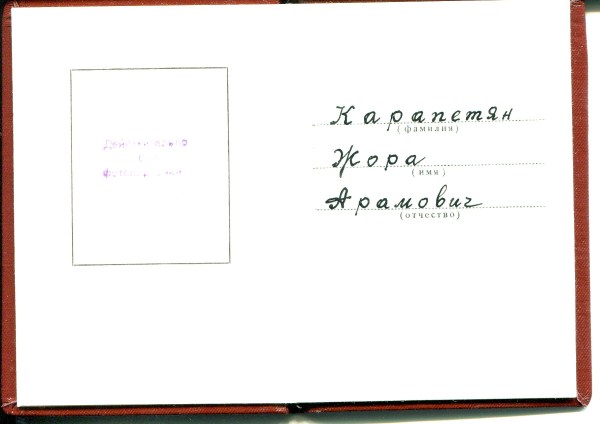 Действительно
без
фотокарточки
Карапетян
(фамилия)
Жора
(имя)
Арамович
(отчество)